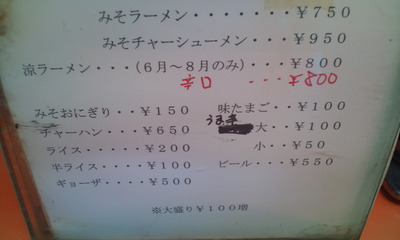 みそラーメン・・・・・・・￥750
みそチャーシューメン・・・￥950
涼ラーメン・・・(6月～8月のみ)・・・・￥800
辛口 ・・・￥800
みそおにぎり・・￥150
チャーハン・・・￥650
ライス・・・・・￥200
半ライス・・・・￥100
ギョーザ・・・・￥500
味たまご・・￥100
大・・￥100
小・・￥50
ビール・・￥550
※大盛り￥100増